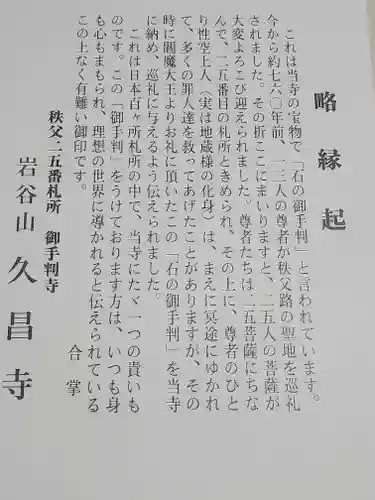 略縁起
これは当寺の宝物で「石の御手判」と言われています。
今から約七六〇年前、一三人の尊者が秩父路の聖地を巡礼
されました。その折ここにまいりますと、二五人の菩薩が
大変よろこび迎えられました。尊者たちは二五菩薩にちな
んで、二五番目の札所ときめられ、その上に、尊者のひと
り性空上人（実は地蔵様の化身）は、まえに冥途にゆかれ
て、多くの罪人達を救ってあげたことがありますが、その
時に閻魔大王よりお礼に頂いたこの「石の御手判」を当寺
に納め、巡礼に与えるよう伝えられました。
これは日本百ヶ所札所の中で、当寺にたゞ一つの貴いも
のです。この「御手判」をうけております方は、いつも身
も心もまもられ、理想の世界に導かれると伝えられている
この上なく有難い御印です。
合掌
秩父二五番札所　御手判寺
岩谷山　久昌寺